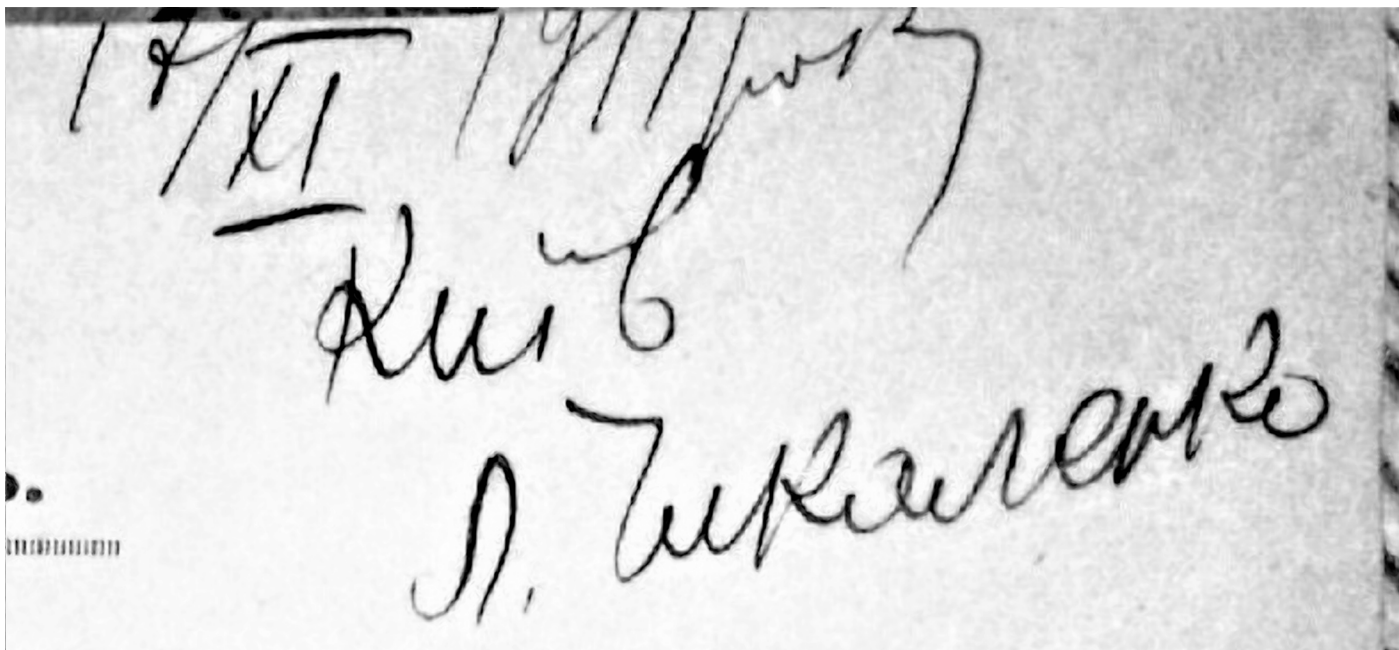 17/XI 1911 року
Київ
Л. Чикаленко